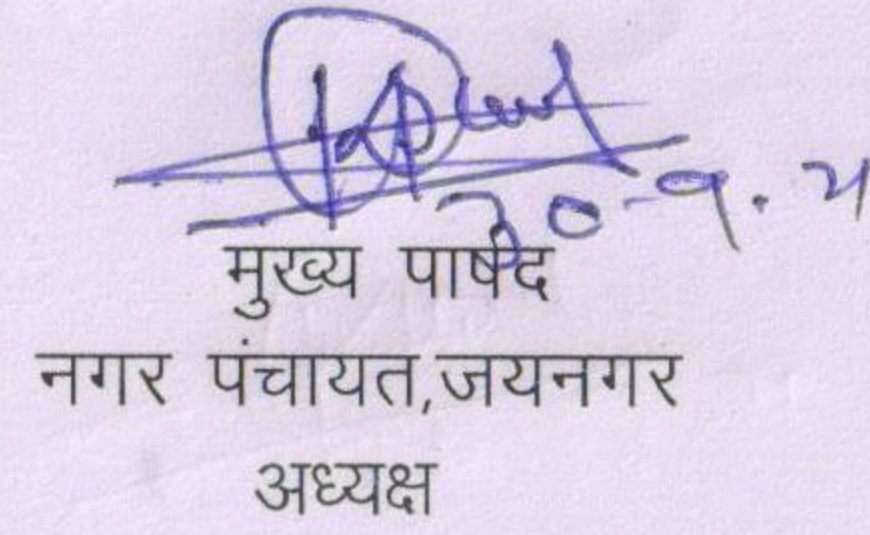 30-9.21
मुख्य पार्षद
नगर पंचायत,जयनगर
अध्यक्ष